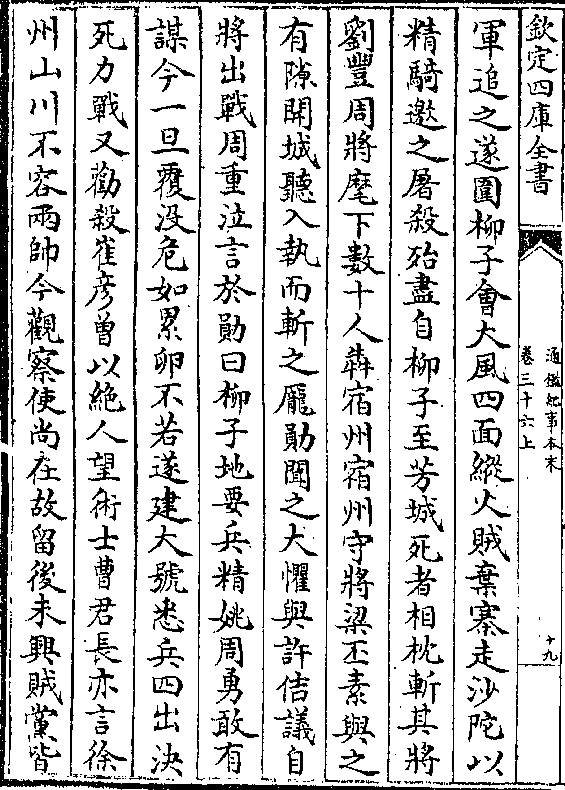 欽定四庫全書
通鑑紀事本末
卷三十六上
十九
軍追之遂圍柳子會大風四面縱火賊棄寨走沙陀以
精騎邀之屠殺殆盡自柳子至芳城死者相枕斬其將
劉豐周將麾下數十人犇宿州宿州守將梁丕素與之
有隙開城聽入執而斬之龐勛聞之大懼與許佶議自
將出戰周重泣言於勛曰柳子地要兵精姚周勇敢有
謀今一旦覆没危如累卵不若遂建大號悉兵四出決
死力戰又勸殺崔彦曾以絶人望術士曹君長亦言徐
州山川不容兩帥今觀察使尚在故留後未興賊黨皆